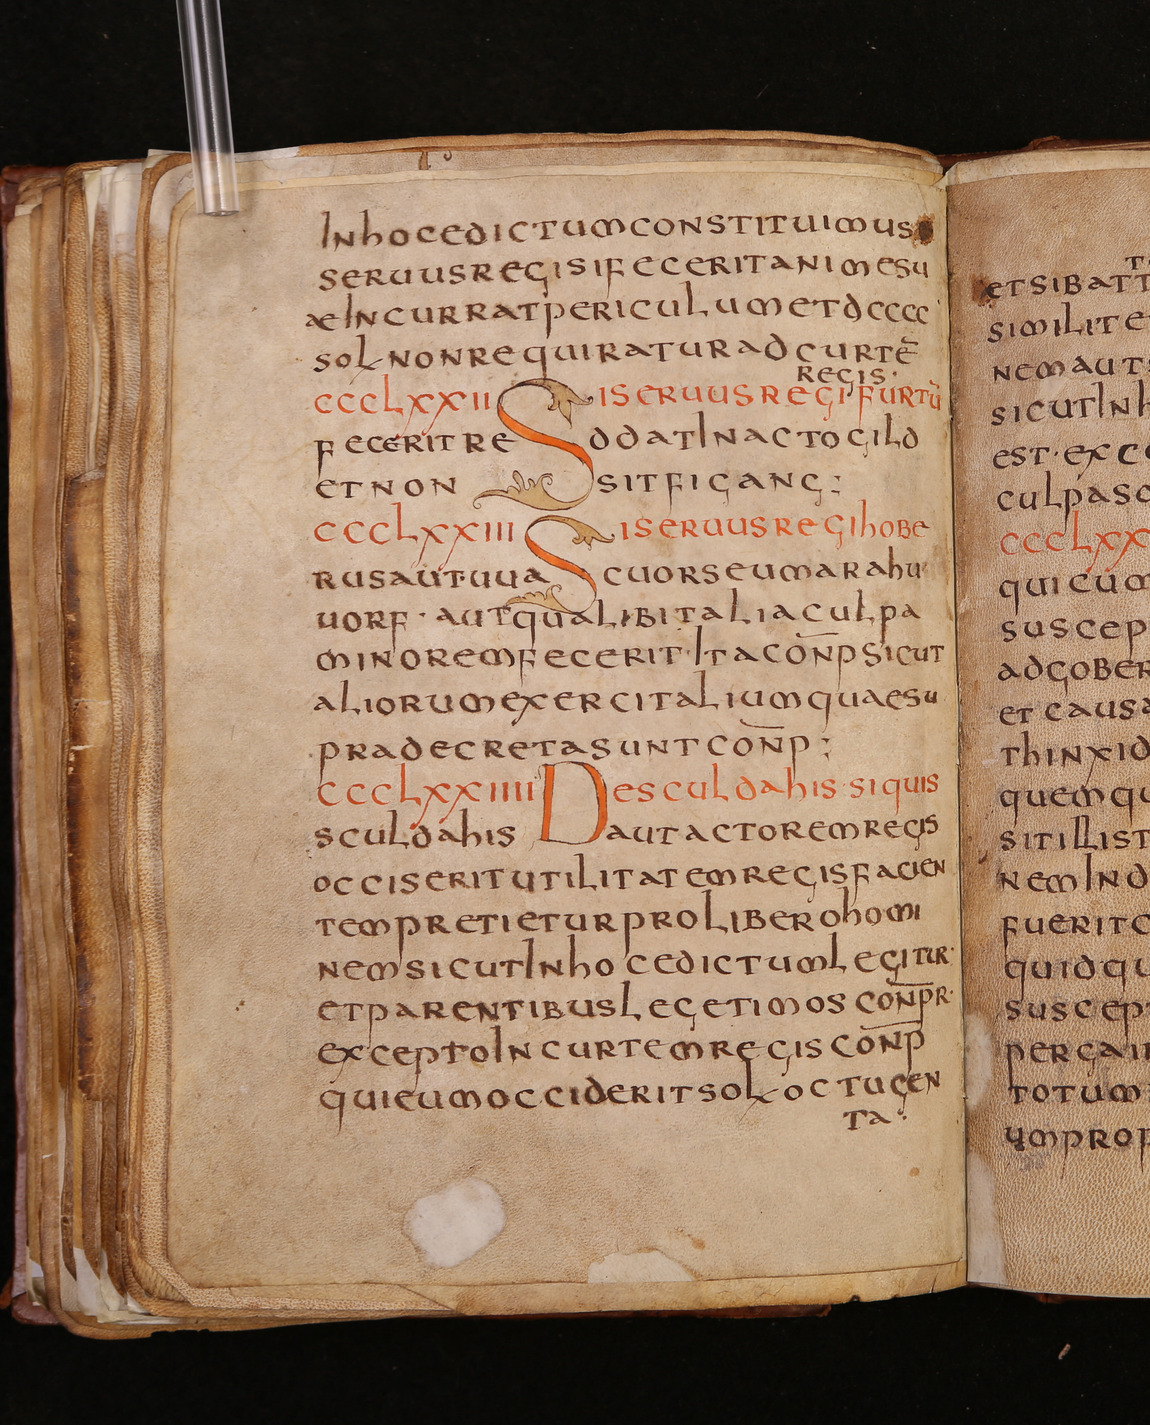 Inhocedictumconstituimus
seruusregis if feceritanimesu
aeIncurratpericulumetdcccc
solnonrequiraturadcurtē
regis·
ccclxxii Siseruusregi furtū
feceritreddatInactogild
etnon sitfigang;
ccclxxiii Siseruusregihobe
rusautuua scuorseumarahu
uorf·autqualibitaliaculpa
minoremfecerit·Itacoñpsicut
aliorumexercitaliumquaesu
pradecretasuntcoñp;
ccclxxiiii Desculdahis·siquis
sculdahis autactoremregis
occiseritutilitatemregisfacien
tempretieturproliberohomi
nemsicutInhocedictumlegitur·
etparentibuslegetimoscoñpr·
exceptoIncurtemregiscoñp
quieumocciderit soloctugen
ta·
etsibatt
similite
nemaut
sicutInh
est·exc
culpasc
ccclxx
quicum
suscep
adgober
etcausa
thinxid
quemqu
sitillist
nemInd
fueritc
quidqu
suscept
pergai
totum